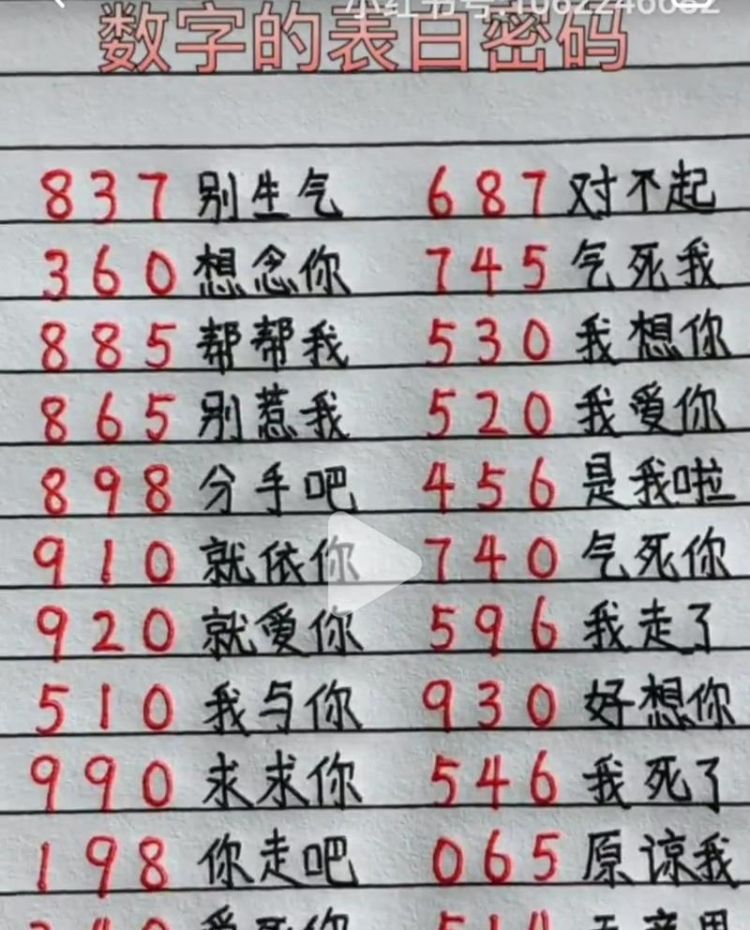 小红书号:1062246682
数字的表白密码
837 别生气 687 对不起
360 想念你 745 气死我
885 帮帮我 530 我想你
865 别惹我 520 我爱你
898 分手吧 456 是我啦
910 就依你 740 气死你
920 就爱你 596 我走了
510 我与你 930 好想你
990 求求你 546 我死了
198 你走吧 065 原谅我